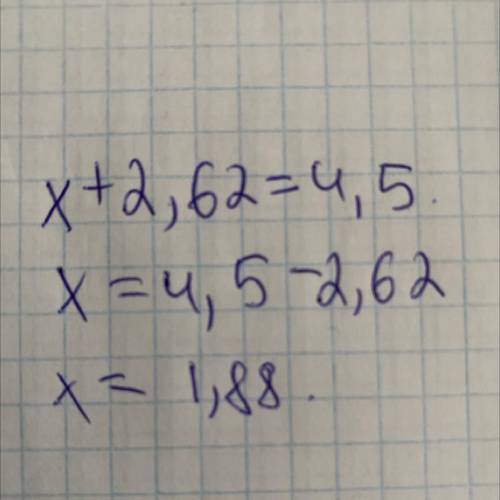 x+2,62=4,5.
x=4,5-2,62
x=1,88.